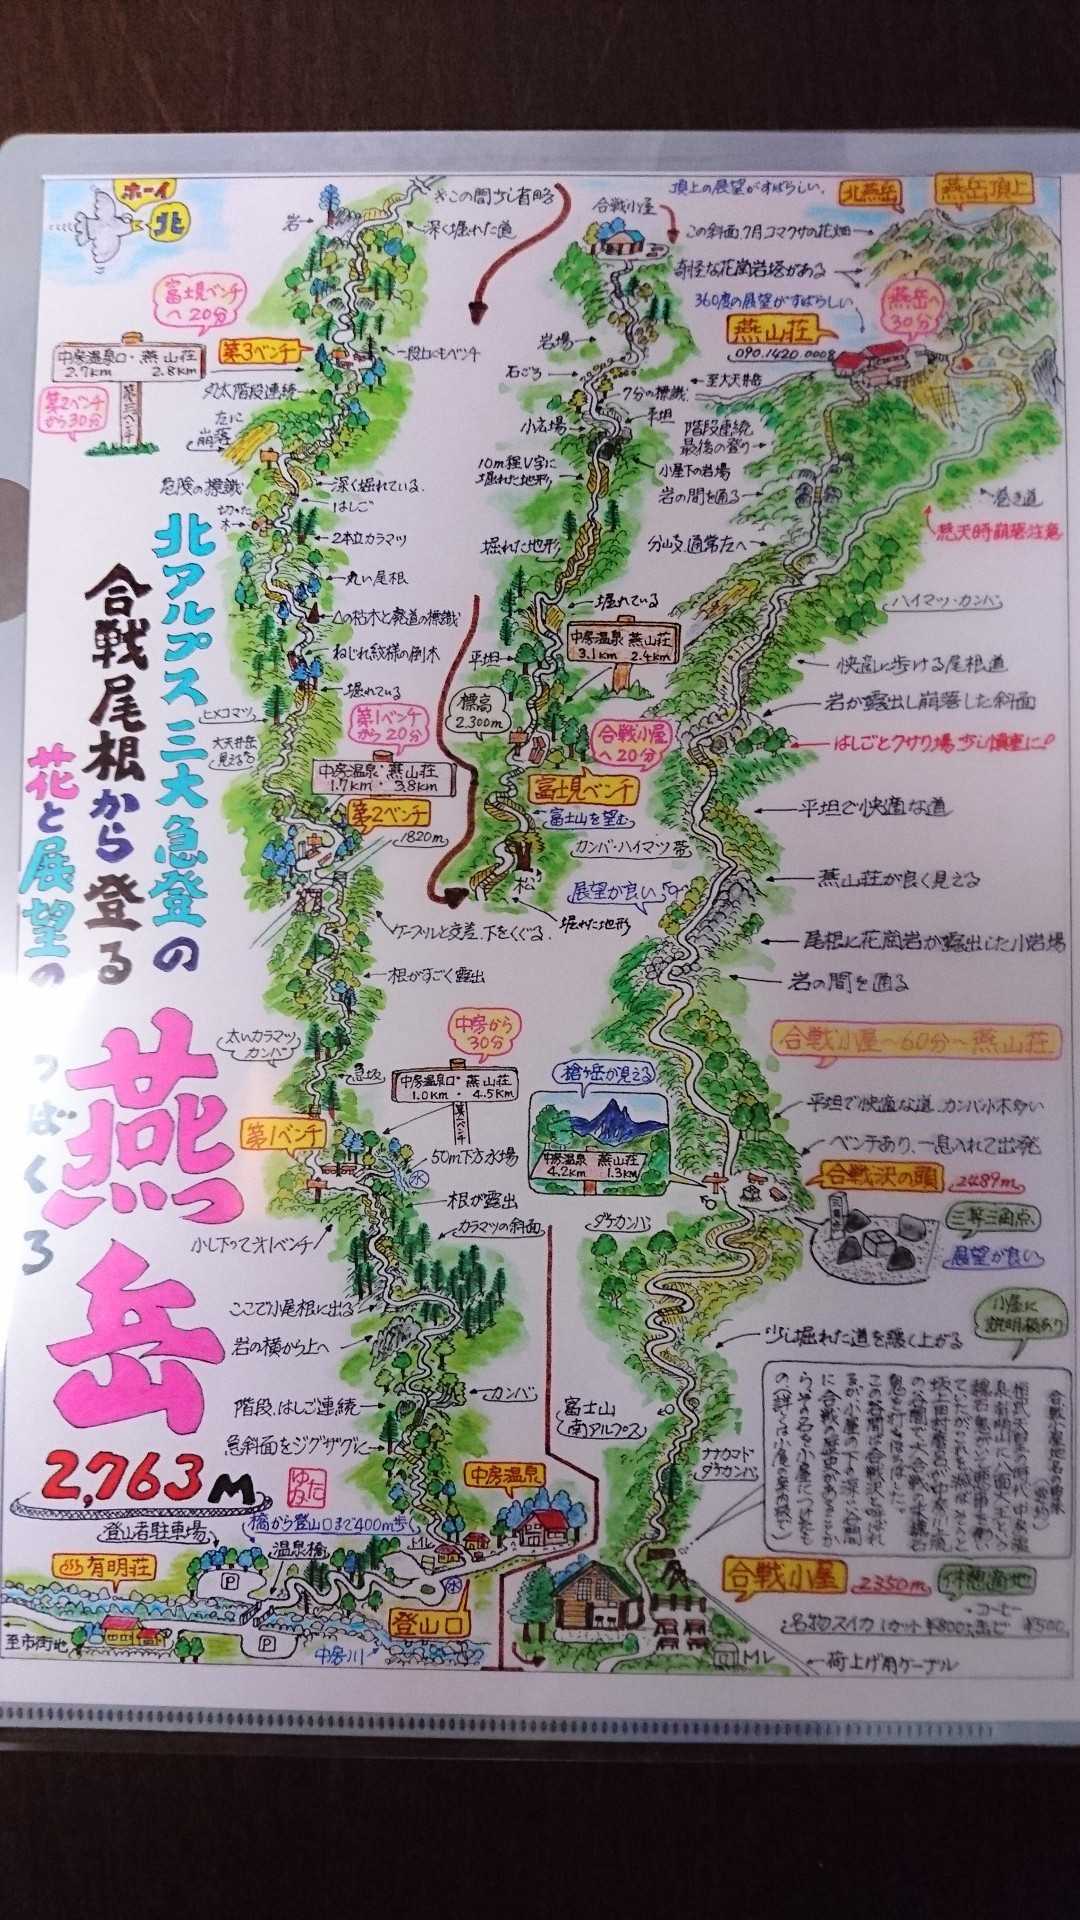 北アルプス三大急登の
合戦尾根から登る
花と展望の
燕岳
つばくろ
2,763M
ホーイ
北
岩
※この間少し省略
深く掘れた道
富士見ベンチ
へ20分
中房温泉口・燕山荘
2.7km 2.8km
第三ベンチ
第2ベンチ
から30分
第3ベンチ
一段上にもベンチ
丸太階段連続
崩落
危険の標識
深く掘れている
はしご
切った
木
2本立カラマツ
丸い尾根
ねじれ紋様の倒木
掘れている
ヒメコマツ
大天井岳
見える
第1ベンチ
から20分
中房温泉・燕山荘
1.7km・3.8km
第2ベンチ
1820m
ケーブルと交差、下をくぐる
根がすごく露出
太いカラマツ
カンバ
急坂
中房から
30分
中房温泉口・燕山荘
1.0km・4.5km
第1ベンチ
50m下方水場
水
根が露出
カラマツの斜面
小し下って才1ベンチ
ここで小尾根に出る
岩の横から上へ
階段、はしご連続
カンバ
急斜面をジグザグに
中房温泉
橋から登山口まで400m歩く
登山者駐車場
温泉橋
有明荘
P
P
水
登山口
中房川
至市街地
合戦小屋
岩場
石ごろ
7分の標識
平坦
小岩場
小屋下の岩場
10m程V字に
掘れた地形
掘れた地形
掘れている
中房温泉 燕山荘
3.1km 2.4km
平坦
標高
2,300m
合戦小屋
へ20分
富士見ベンチ
富士山を望む
松
掘れた地形
頂上の展望がすばらしい
北燕岳
燕岳頂上
この斜面、7月コマクサの花畑
奇怪な花崗岩塔がある
360度の展望がすばらしい
燕山荘
090.1420.0008
燕岳へ
30分
至大天井岳
階段連続
最後の登り
岩の間を通る
巻き道
荒天時崩壊注意
分岐、通常左へ
ハイマツ・カンバ
快適に歩ける尾根道
岩が露出し崩落した斜面
はしごとクサリ場 少し慎重に!
平坦で快適な道
カンバ・ハイマツ帯
展望が良い
燕山荘が良く見える
尾根に花崗岩が露出した小岩場
岩の間を通る
合戦小屋〜60分〜燕山荘
槍ヶ岳が見える
中房温泉 燕山荘
4.2km 1.3km
平坦で快適な道、カンバ小木多い
ベンチあり、一息入れて出発
合戦沢の頭
2489m
三等三角点
展望が良い
ダケカンバ
少し掘れた道を緩く上がる
小屋に
説明板あり
富士山
南アルプス
ナナカマド
ダケカンバ
合戦小屋
2350m
休憩適地
コーヒー
名物スイカ1カット¥800 ¥500
荷上げ用ケーブル